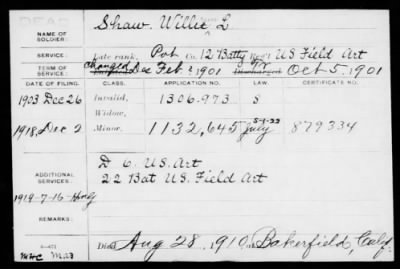 DEAD
NAME OF SOLDIER: Shaw, Willie L
SERVICE: Late rank, Pvt Co. 12 Batty Reg't US Field Art
TERM OF SERVICE: Enlisted Feb 1901 Discharged Oct 5, 1901
DATE OF FILING. CLASS. APPLICATION NO. LAW. CERTIFICATE NO.
1903 Dec 26 Invalid, 1306.973 S
Widow,
1918, Dec 2 Minor, 1132,645 July 879334
ADDITIONAL SERVICES: D 6. U.S. Art
22 Bat U.S. Field Art
1919-7-16-
REMARKS:
Died Aug 28, 1910, at Bakerfield, Calf.